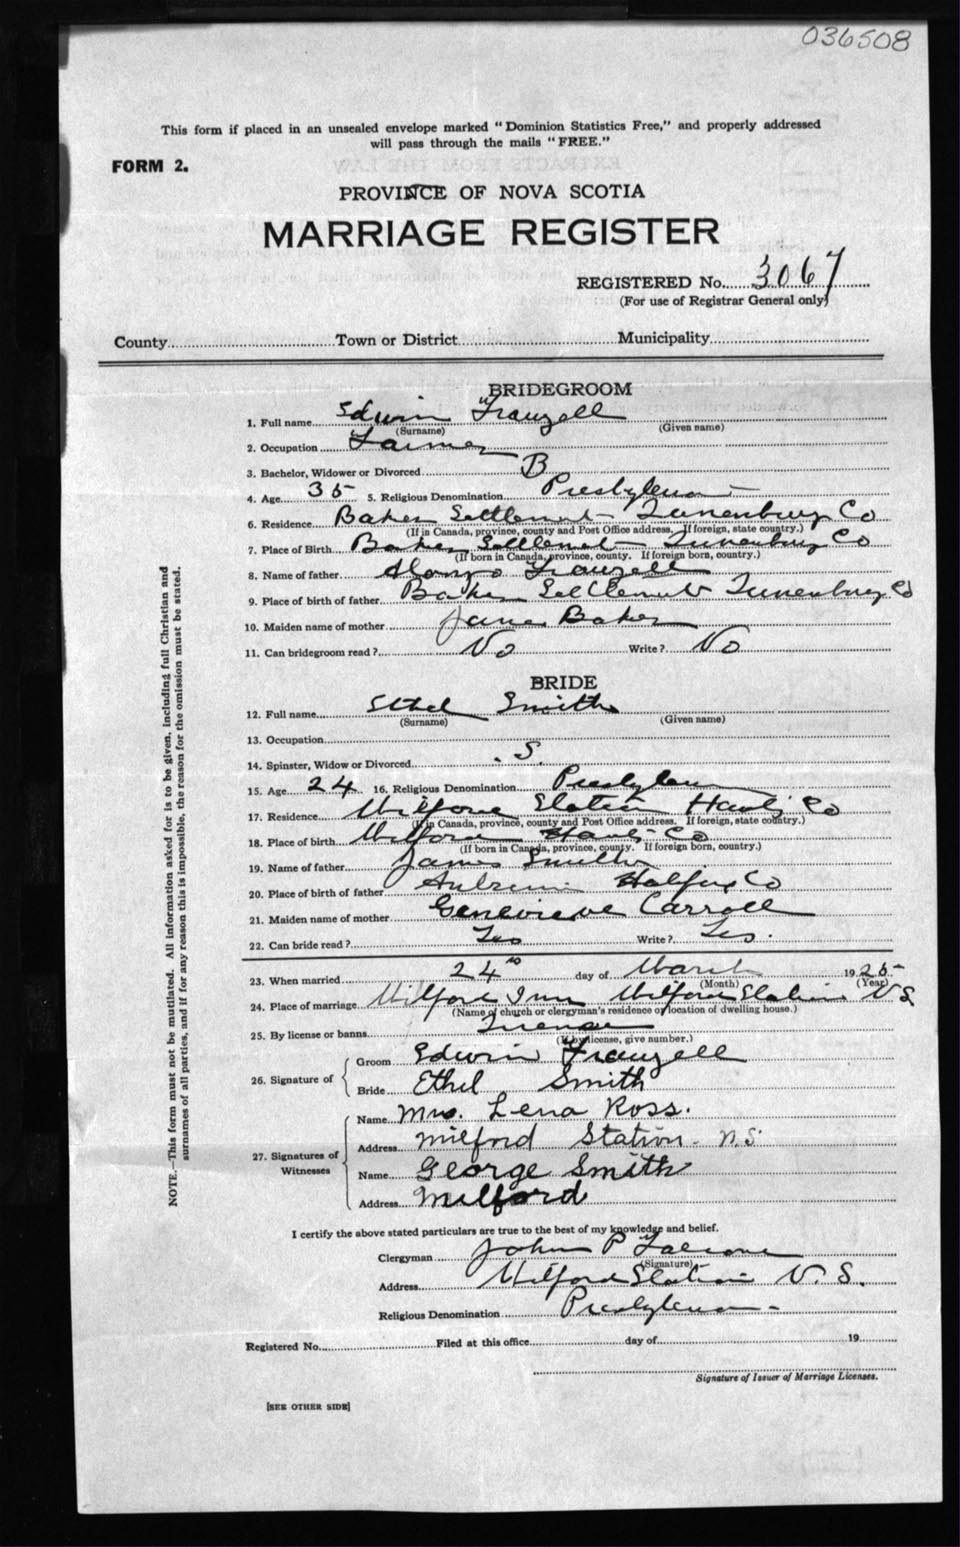 036508
This form if placed in an unsealed envelope marked "Dominion Statistics Free," and properly addressed
will pass through the mails "FREE."
FORM 2.
PROVINCE OF NOVA SCOTIA
MARRIAGE REGISTER
REGISTERED No. 3067
(For use of Registrar General only)
County Town or District Municipality
BRIDEGROOM
1. Full name Edwin Frauzell
(Surname) (Given name)
2. Occupation Farmer
3. Bachelor, Widower or Divorced B
4. Age 35 5. Religious Denomination Presbyterian
6. Residence Baker Settlement Lunenburg Co
(If in Canada, province, county and Post Office address. If foreign, state country.)
7. Place of Birth Baker Settlement Lunenburg Co
(If born in Canada, province, county. If foreign born, country.)
8. Name of father Alonzo Frauzell
9. Place of birth of father Baker Settlement Lunenburg Co
10. Maiden name of mother Jane Baker
11. Can bridegroom read? No Write? No
BRIDE
12. Full name Ethel Smith
(Surname) (Given name)
13. Occupation
14. Spinster, Widow or Divorced S.
15. Age 24 16. Religious Denomination Presbyterian
17. Residence Milford Station Hants Co
(If in Canada, province, county and Post Office address. If foreign, state country.)
18. Place of birth Milford Hants Co
(If born in Canada, province, county. If foreign born, country.)
19. Name of father James Smith
20. Place of birth of father Halifax Co
21. Maiden name of mother Genevieve Carroll
22. Can bride read? Yes Write? Yes.
23. When married 24 day of March 1925
(Month) (Year)
24. Place of marriage Milford Inn Milford Station N S
(Name of church or clergyman's residence or location of dwelling house.)
25. By license or banns License
(If by license, give number.)
26. Signature of
Groom Edwin Frauzell
Bride Ethel Smith
27. Signatures of Witnesses
Name Mrs. Lena Ross.
Address Milford Station. N.S.
Name George Smith
Address Milford
I certify the above stated particulars are true to the best of my knowledge and belief.
Clergyman John P Falconer
(Signature)
Address Milford Station N. S.
Religious Denomination Presbyterian
Registered No. Filed at this office day of 19
Signature of Issuer of Marriage Licenses.
[SEE OTHER SIDE]
NOTE.—This form must not be mutilated. All information asked for is to be given, including full Christian and
surnames of all parties, and if for any reason this is impossible, the reason for the omission must be stated.